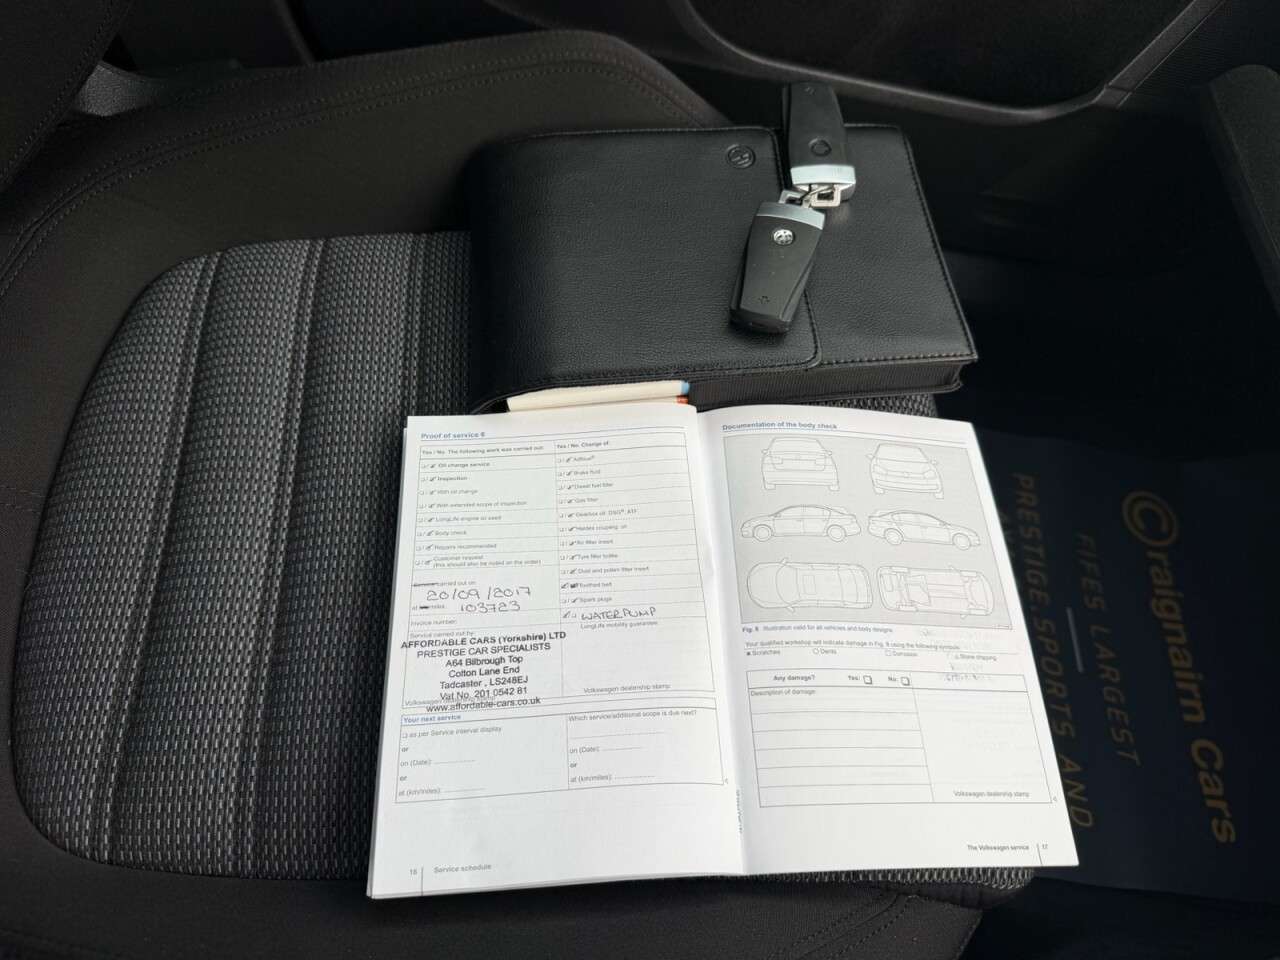 Proof of service 6
Yes / No The following work was carried out:
Oil change service
Inspection
With oil change
With extended scope of inspection
LongLife engine oil used
Body check
Repairs recommended
Customer request
(this should also be noted on the order)
Service carried out on
20/09/2017
at miles: 103723
Invoice number:
Service carried out by:
AFFORDABLE CARS (Yorkshire) LTD
PRESTIGE CAR SPECIALISTS
A64 Bilbrough Top
Colton Lane End
Tadcaster , LS248EJ
Vat No. 201 0542 81
Volkswagen dealership stamp
www.affordable-cars.co.uk
Yes / No Change of:
Adblue®
Brake fluid
Diesel fuel filter
Gas filter
Gearbox oil DSG®, ATF
Haldex coupling oil
Air filter insert
Tyre filler bottle
Dust and pollen filter insert
Toothed belt
Spark plugs
WATERPUMP
LongLife mobility guarantee:
Volkswagen dealership stamp
Your next service
as per Service interval display
or
on (Date):
or
at (km/miles):
Which service/additional scope is due next?
on (Date):
or
at (km/miles):
16 Service schedule
Documentation of the body check
Fig. 8 Illustration valid for all vehicles and body designs
Your qualified workshop will indicate damage in Fig. 8 using the following symbols:
Scratches Dents Corrosion Stone chipping
Any damage? Yes: No:
Description of damage:
Volkswagen dealership stamp
The Volkswagen service 17
Craignairn Cars
FIFES LARGEST
PRESTIGE, SPORTS AND